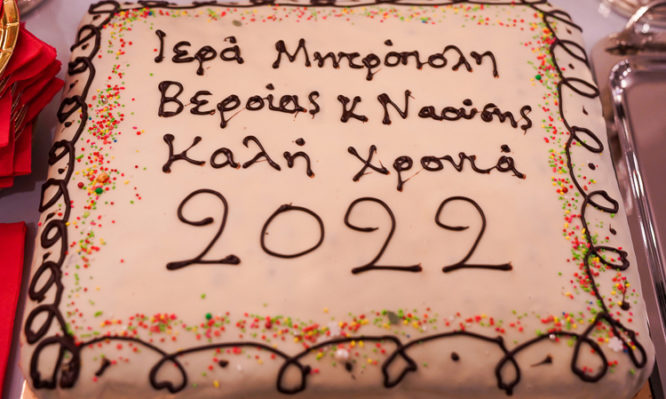 Ιερά Μητρόπολη
Βεροίας κ Ναούσης
Καλή Χρονιά
2022